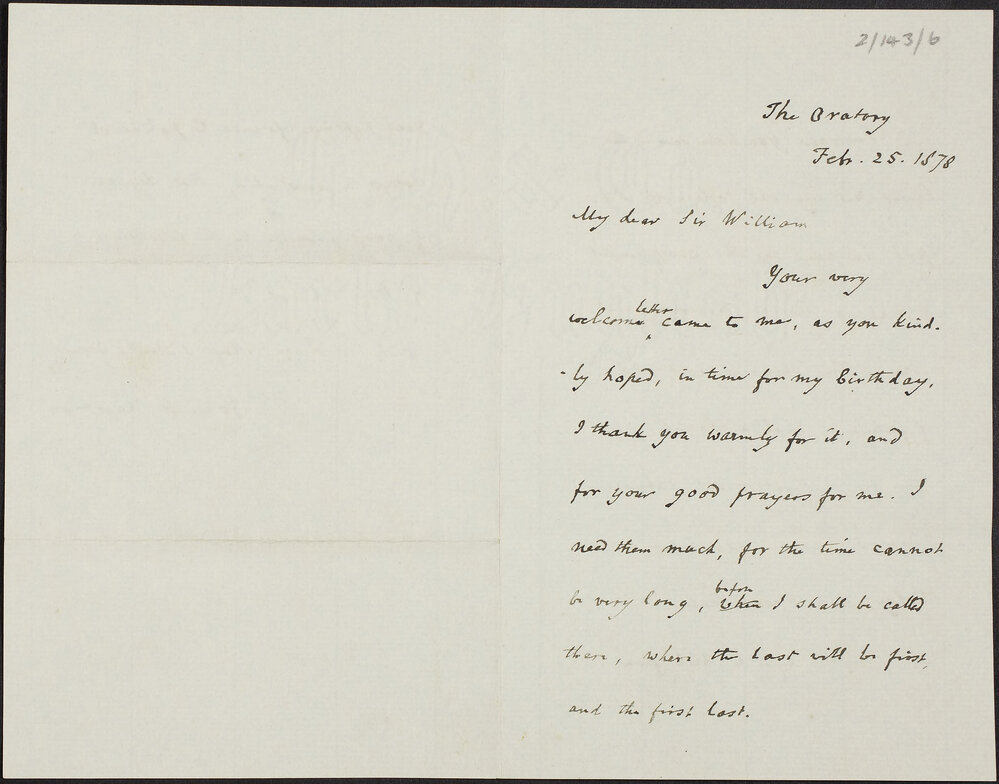 2/143/6
The Oratory
Febr. 25. 1878
My dear Sir William
Your very
welcome letter came to me, as you kind-
-ly hoped, in time for my birthday.
I thank you warmly for it, and
for your good prayers for me. I
need them much, for the time cannot
be very long, before when I shall be called
there, where the last will be first,
and the first last.